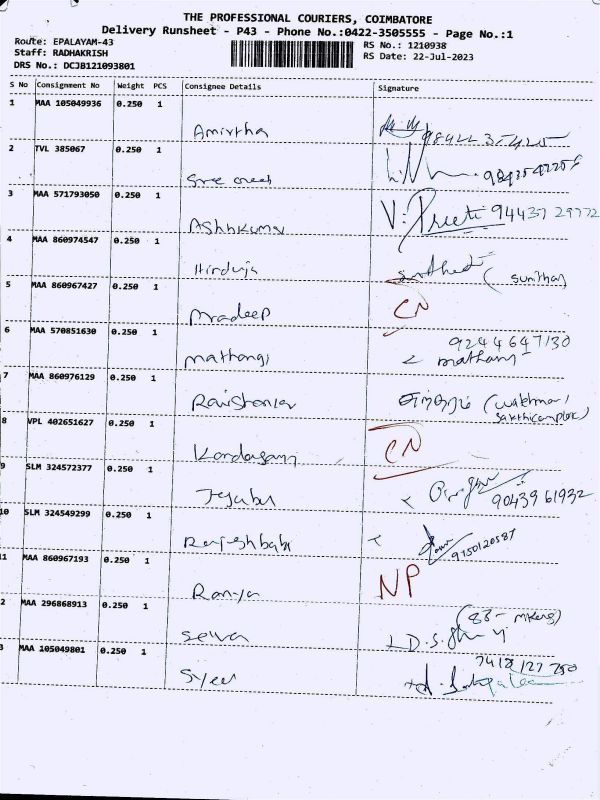 THE PROFESSIONAL COURIERS, COIMBATORE
Delivery Runsheet - P43 - Phone No.:0422-3505555 - Page No.:1
Route: EPALAYAM-43 RS No.: 1210938
Staff: RADHAKRISH RS Date: 22-Jul-2023
DRS No.: DCJB121093801
S No Consignment No Weight PCS Consignee Details Signature
1 MAA 105049936 0.250 1
Amirtha 98422 35425
2 TVL 385067 0.250 1
Sree
3 MAA 571793050 0.250 1
Ashkumar V. Preeti 94437 29772
4 MAA 860974547 0.250 1
Hinduja (Sunitha)
5 MAA 860967427 0.250 1
Pradeep CN
6 MAA 570851630 0.250 1 9244647130
mathangi
7 MAA 860976129 0.250 1
(watchman/
8 VPL 402651627 0.250 1
CN
9 SLM 324572377 0.250 1
Jeyabu 90439 61932
10 SLM 324549299 0.250 1
Rajeshbabu 9750120587
11 MAA 860967193 0.250 1
Ramya NP
2 MAA 296868913 0.250 1
Selva
3 MAA 105049801 0.250 1 7418 127 750
Syed